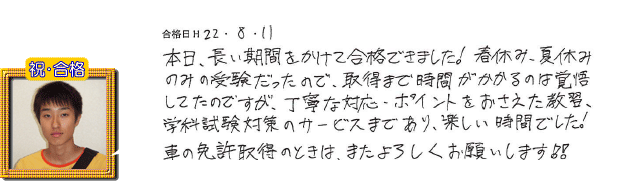 合格日 H 22・8・11
祝・合格
本日、長い期間をかけて合格できました! 春休み、夏休み
のみの受験だったので、取得まで時間がかかるのは覚悟
してたのですが、丁寧な対応・ポイントをおさえた教習、
学科試験対策のサービスまであり、楽しい時間でした!
車の免許取得のときは、またよろしくお願いします!!